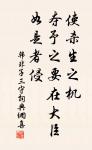 使杀生之机
夺予之要在大臣
如是者侵
韩非子三守词典网喜